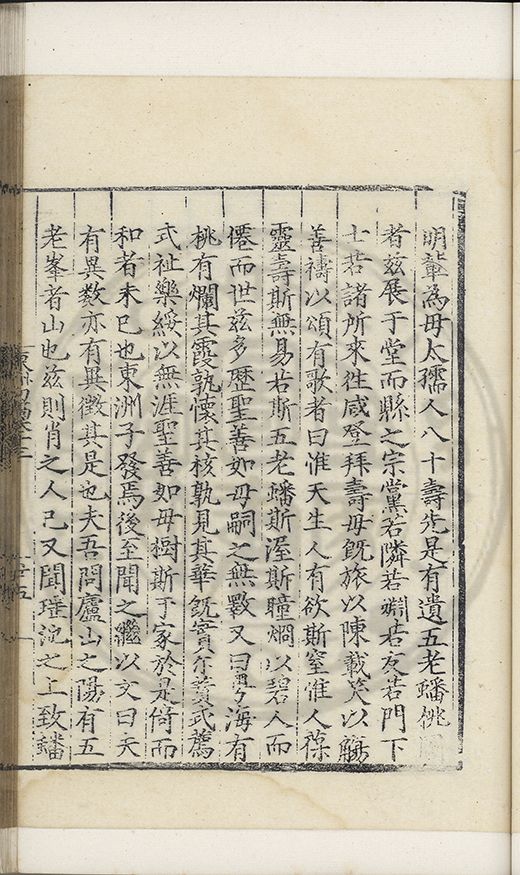 明輩為母太孺人八十壽先是有遺五老蟠桃圖
者玆展于堂而縣之宗黨若隣若婣若友若門下
士若諸所來徃咸登拜壽母旣旅以陳載笑以觴
善禱以頌有歌者曰惟天生人有欲斯窒惟人葆
靈壽斯無易若斯五老蟠斯渥斯瞳烱以碧人而
僊而世玆多歴聖善如母嗣之無斁又曰海有
桃有爛其霞孰懷其核孰見其華旣實尓蕡式薦
式祉樂綏以無涯聖善如母樹斯于家於是倚而
和者未已也東洲子發焉後至聞之繼以文曰天
有異数亦有異徴其是也夫吾問廬山之陽有五
老峯者山也玆則肖之人已又聞琒沱之上致蟠
東洲初稿卷十三
廿五